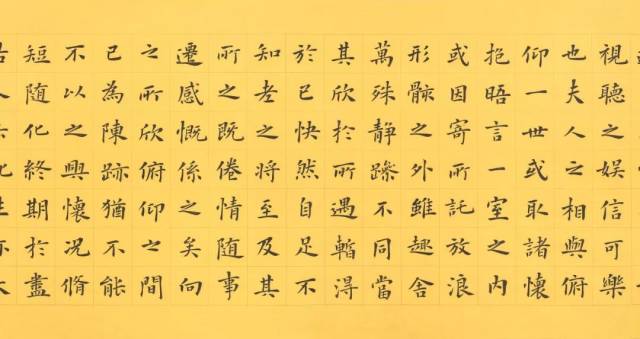 視聽之娛信可樂
也夫人之相與俯
仰一世或取諸懷
抱晤言一室之內
或因寄所託放浪
形骸之外雖趣舍
萬殊靜躁不同當
其欣於所遇暫得
於己快然自足不
知老之將至及其
所之既倦情随事
遷感慨係之矣向
之所欣俯仰之間
已為陳跡猶不能
不以之興懷況脩
短随化終期於盡